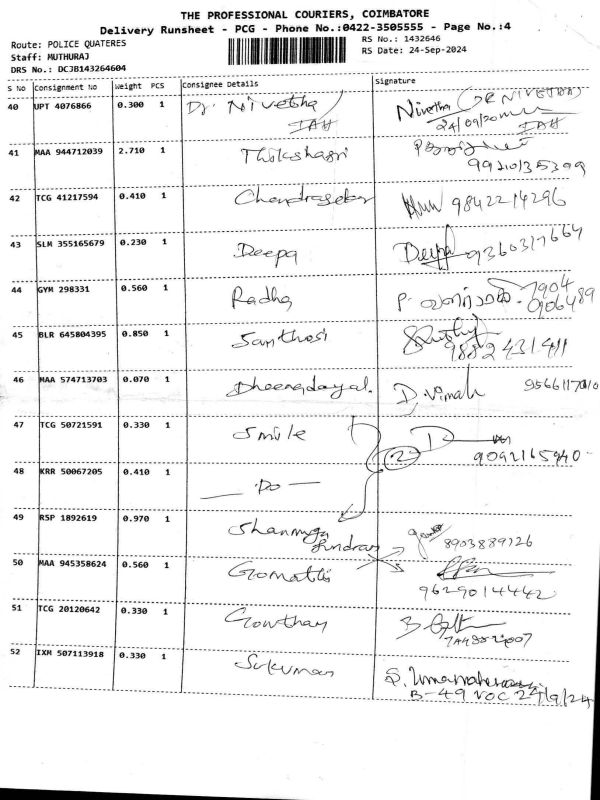 THE PROFESSIONAL COURIERS, COIMBATORE
Delivery Runsheet - PCG - Phone No.:0422-3505555 - Page No.:4
Route: POLICE QUATERES
RS No.: 1432646
Staff: MUTHURAJ
RS Date: 24-Sep-2024
DRS No.: DCJB143264604
S No Consignment No Weight PCS Consignee Details Signature
40 UPT 4076866 0.300 1 Dr. Nivetha Nivetha
IAH 24/09/20 IAH
41 MAA 944712039 2.710 1 Thikshasri
42 TCG 41217594 0.410 1 Chandrasekar 9842214296
43 SLM 355165679 0.230 1 Deepa Deepa 9360317664
44 GYM 298331 0.560 1 Radha P. வளர்மதி 7904
0906489
45 BLR 645804395 0.850 1 Santhosi
9882431411
46 MAA 574713703 0.070 1 Dheenadayal. D. Vimal 9566117010
47 TCG 50721591 0.330 1 Smile 2
9092165940
48 KRR 50067205 0.410 1 — Do —
49 RSP 1892619 0.970 1 Shanmuga
Sundram 8903889726
50 MAA 945358624 0.560 1 Gomathi
9629014442
51 TCG 20120642 0.330 1 Gowtham
52 IXM 507113918 0.330 1 Sukumar S. Umamaheswari
B-49 VOC 24/9/24